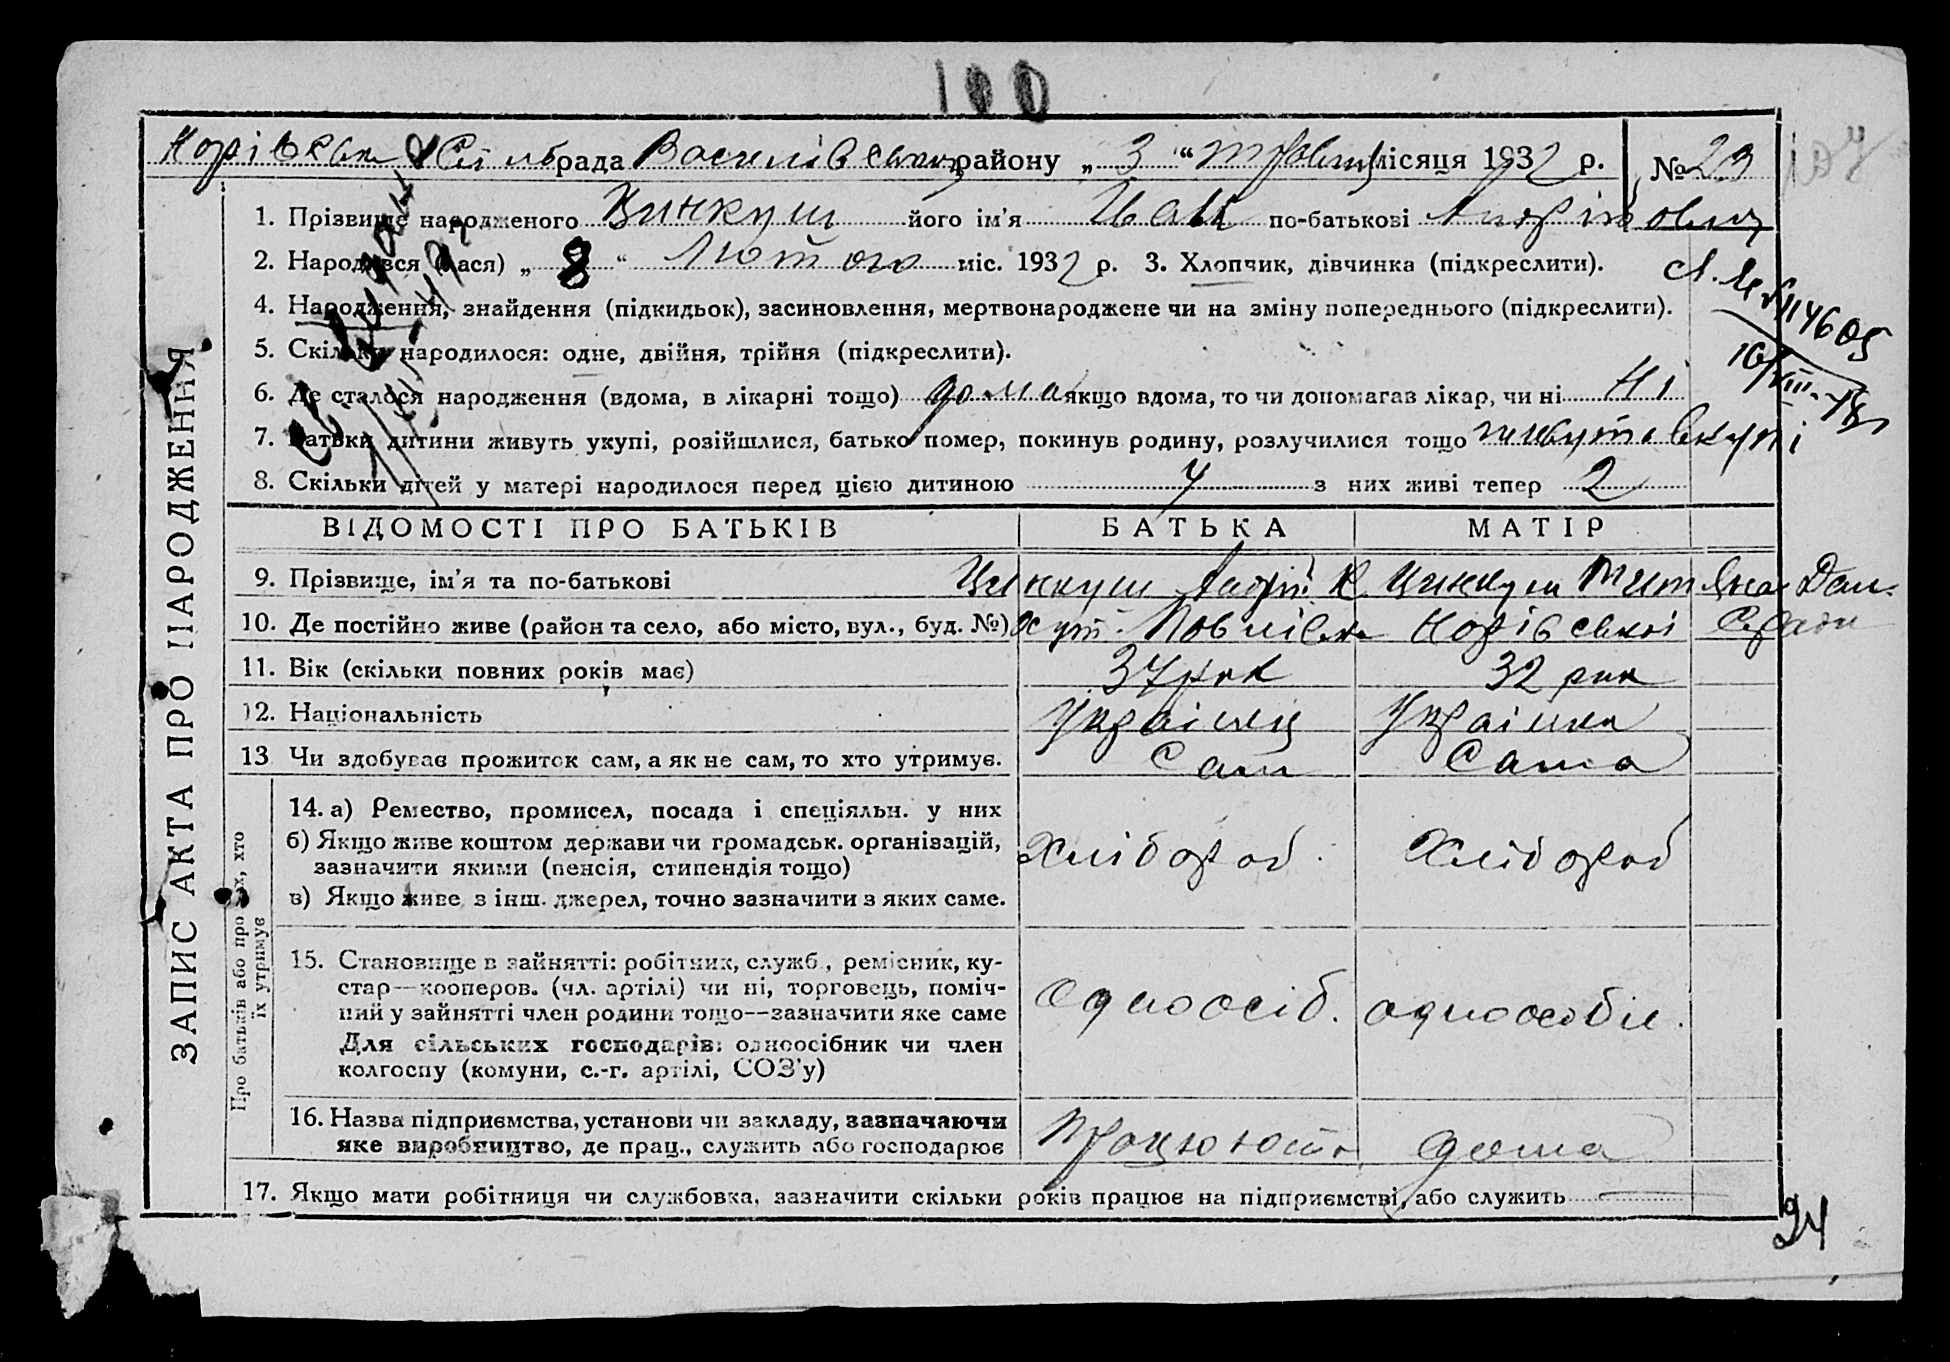 100
Норівська Сільрада Василівського району „ 3 “ травня місяця 1932 р. № 23
1. Прізвище народженого Цинкуш його ім’я Іван по-батькові Андрійович
2. Народився (лася) „ 8 “ Лютого міс. 1932 р. 3. Хлопчик, дівчинка (підкреслити).
4. Народження, знайдення (підкидьок), засиновлення, мертвонароджене чи на зміну попереднього (підкреслити).
5. Скільки народилося: одне, двійня, трійня (підкреслити).
6. Де сталося народження (вдома, в лікарні тощо) дома якщо вдома, то чи допомагав лікар, чи ні Ні
7. Батьки дитини живуть укупі, розійшлися, батько помер, покинув родину, розлучилися тощо живуть вкупі
8. Скільки дітей у матері народилося перед цією дитиною 4 з них живі тепер 2
ВІДОМОСТІ ПРО БАТЬКІВ БАТЬКА МАТІР
9. Прізвище, ім’я та по-батькові Цинкуш Андрій К Цинкуш
10. Де постійно живе (район та село, або місто, вул., буд. №) Хут. Норівської С/ради
11. Вік (скільки повних років має) 37 рок 32 рок
12. Національність Українець Українка
13 Чи здобуває прожиток сам, а як не сам, то хто утримує. Сам Сама
14. а) Ремество, промисел, посада і спеціяльн. у них
б) Якщо живе коштом держави чи громадськ. організацій,
зазначити якими (пенсія, стипендія тощо) Хлібороб Хлібороб
в) Якщо живе з інш. джерел, точно зазначити з яких саме.
15. Становище в зайнятті: робітник, служб., ремісник, ку-
стар—кооперов. (чл. артілі) чи ні, торговець, поміч-
ний у зайнятті член родини тощо—зазначити яке саме Одноосіб. одноособн.
Для сільських господарів: одноосібник чи член
колгоспу (комуни, с.-г. артілі, СОЗ’у)
16. Назва підприємства, установи чи закладу, зазначаючи
яке виробництво, де прац., служить або господарює Працюють дома
17. Якщо мати робітниця чи службовка, зазначити скільки років працює на підприємстві, або служить
ЗАПИС АКТА ПРО НАРОДЖЕННЯ
їх утримує
24